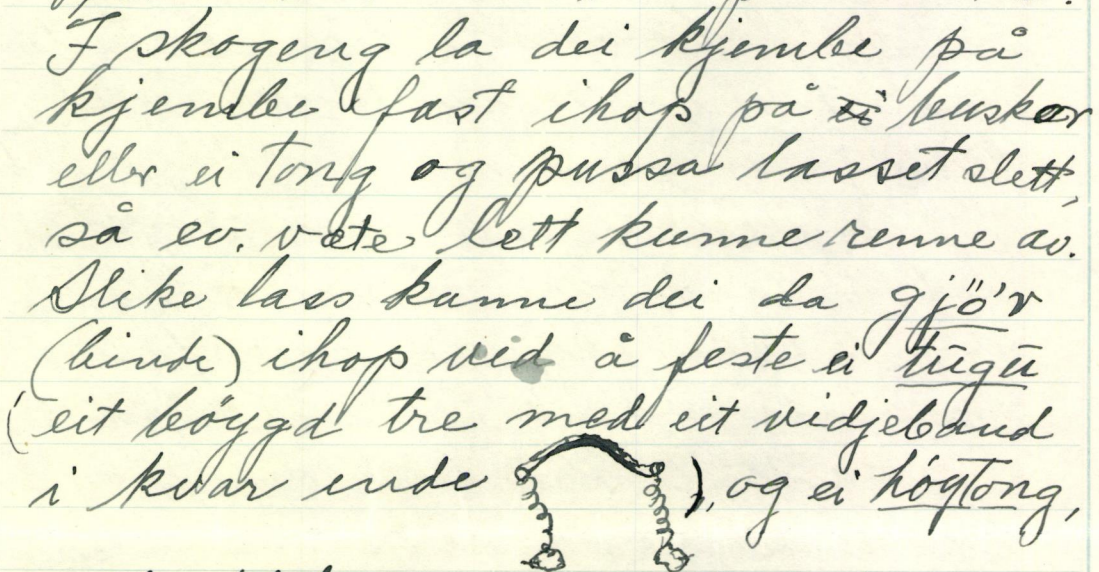 I skogeng la dei kjembe på
kjembe fast ihop på ei buskar
eller ei tong og pussa lasset slett,
så ev. væte lett kunne renne av.
Slike lass kunne dei da gjö'r
(binde) ihop ved å feste ei tūgū
(eit böygd tre med eit vidjeband
i kvar ende ), og ei höytong,